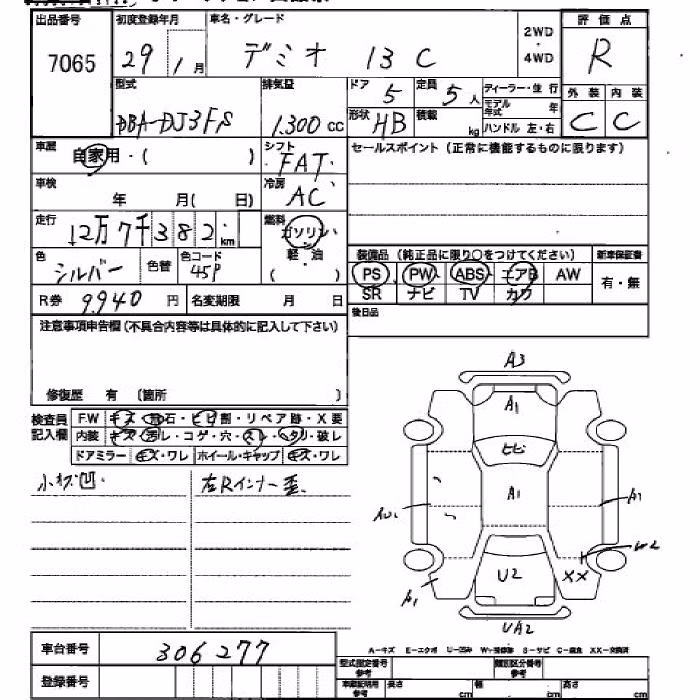 出品番号 初度登録年月 車名・グレード 2WD ・ 4WD 評価点
7065 29年1月 デミオ 13C R
型式 排気量 ドア 定員 ディーラー・並行 外装 内装
DBA-DJ3FS 1,300cc 5 5人 モデル年式 年 C C
形状 HB 積載 kg ハンドル 左・右
車歴 自家用・( ) シフト FAT セールスポイント(正常に機能するものに限ります)
車検 年 月( 日) 冷房 AC
走行 12万7千382km 燃料 ガソリン 軽・油 ( )
色 シルバー 色替 色コード 45P
装備品(純正品に限り○をつけてください) 新車保証書
PS PW ABS エアB AW 有・無
SR ナビ TV カワ
R券 9,940円 名変期限 月 日 後日品
注意事項申告欄(不具合内容等は具体的に記入して下さい)
修復歴 有 〔箇所 〕
検査員記入欄 F.W キズ・飛石・ヒビ割・リペア跡・X要
内装 キズ・汚レ・コゲ・穴・スレ・ヘタリ・破レ
ドアミラー キズ・ワレ ホイール・キャップ キズ・ワレ
小キズ凹. 左Rインナー歪.
A3
A1
ヒビ
A1
A1
U2
XX
A1
UA2
車台番号 306277
登録番号
A-キズ E-エクボ U-凹ミ W-補修跡 S-サビ C-腐食 XX-交換済
型式指定番号 参考 類別区分番号 参考
車庫証明用 参考 長さ cm 幅 cm 高さ cm